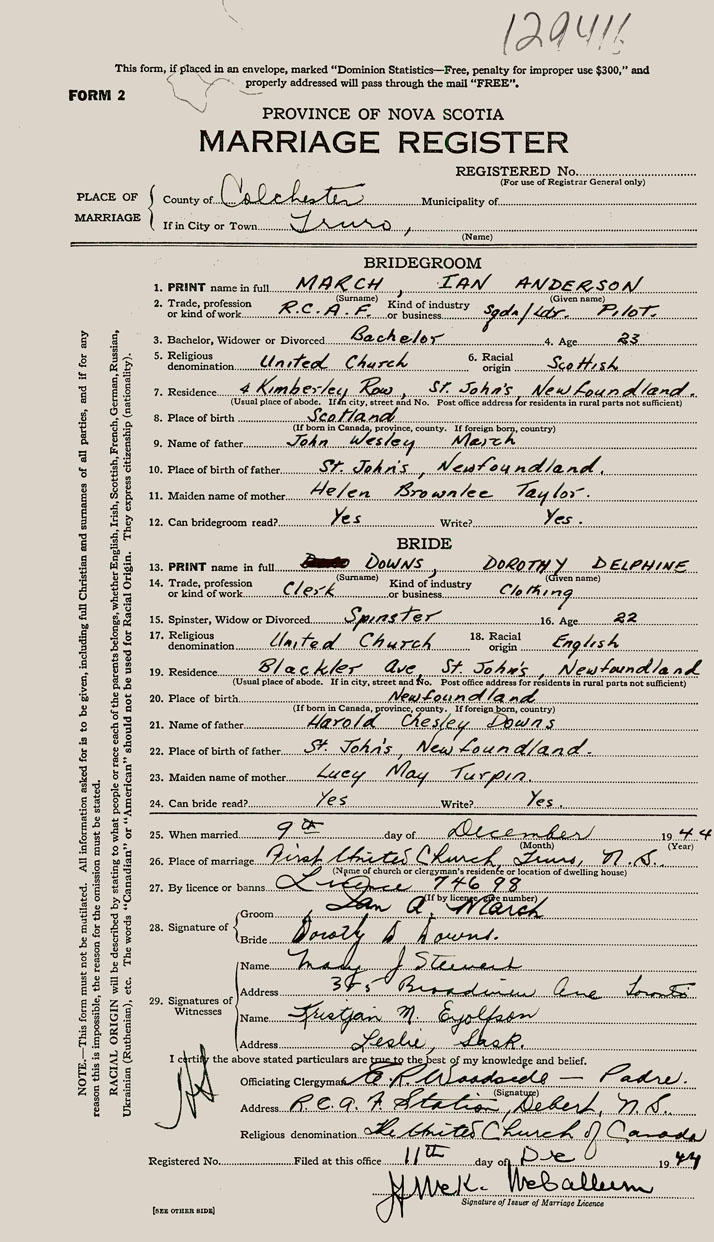 12941
This form, if placed in an envelope, marked "Dominion Statistics—Free, penalty for improper use $300," and
properly addressed will pass through the mail "FREE".
FORM 2
PROVINCE OF NOVA SCOTIA
MARRIAGE REGISTER
REGISTERED No.
(For use of Registrar General only)
PLACE OF MARRIAGE
County of Colchester Municipality of
If in City or Town Truro,
(Name)
BRIDEGROOM
1. PRINT name in full MARCH, IAN ANDERSON
(Surname) (Given name)
2. Trade, profession or kind of work R.C.A.F. Kind of industry or business Sqdn/Ldr. Pilot.
3. Bachelor, Widower or Divorced Bachelor 4. Age 23
5. Religious denomination United Church 6. Racial origin Scottish
7. Residence 4 Kimberley Row, St. John's, Newfoundland.
(Usual place of abode. If in city, street and No. Post office address for residents in rural parts not sufficient)
8. Place of birth Scotland
(If born in Canada, province, county. If foreign born, country)
9. Name of father John Wesley March
10. Place of birth of father St. John's, Newfoundland.
11. Maiden name of mother Helen Brownlee Taylor.
12. Can bridegroom read? Yes Write? Yes.
BRIDE
13. PRINT name in full DOWNS, DOROTHY DELPHINE
(Surname) (Given name)
14. Trade, profession or kind of work Clerk Kind of industry or business Clothing
15. Spinster, Widow or Divorced Spinster 16. Age 22
17. Religious denomination United Church 18. Racial origin English
19. Residence Blackler Ave, St. John's, Newfoundland
(Usual place of abode. If in city, street and No. Post office address for residents in rural parts not sufficient)
20. Place of birth Newfoundland
(If born in Canada, province, county. If foreign born, country)
21. Name of father Harold Chesley Downs
22. Place of birth of father St. John's, Newfoundland.
23. Maiden name of mother Lucy May Turpin.
24. Can bride read? Yes Write? Yes.
25. When married 9th day of December 1944
(Month) (Year)
26. Place of marriage First United Church, Truro, N.S.
(Name of church or clergyman's residence or location of dwelling house)
27. By licence or banns Licence 74698
(If by licence, give number)
28. Signature of
Groom Ian A. March
Bride Dorothy D Downs.
29. Signatures of Witnesses
Name Mary J Stewart
Address 385 Broadview Ave Toronto
Name Kristjan M. Eyolfson
Address Leslie, Sask.
I certify the above stated particulars are true to the best of my knowledge and belief.
Officiating Clergyman E.R. Woodside — Padre.
(Signature)
Address R.C.A.F Station, Debert, N.S.
Religious denomination The United Church of Canada
Registered No. Filed at this office 11th day of Dec 1944
J McK. McCallum
Signature of Issuer of Marriage Licence
[SEE OTHER SIDE]
NOTE.—This form must not be mutilated. All information asked for is to be given, including full Christian and surnames of all parties, and if for any
reason this is impossible, the reason for the omission must be stated.
RACIAL ORIGIN will be described by stating to what people or race each of the parents belongs, whether English, Irish, Scottish, French, German, Russian,
Ukrainian (Ruthenian), etc. The words "Canadian" or "American" should not be used for Racial Origin. They express citizenship (nationality).